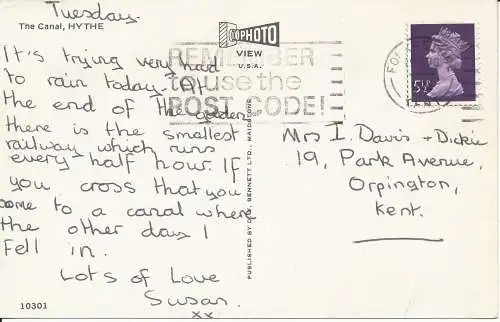 Tuesday.
The Canal, HYTHE
It's trying very hard
to rain today. At
the end of the garden
there is the smallest
railway which runs
every half hour. If
you cross that you
come to a canal where
the other day I
fell in.
Lots of Love
Susan.
xx
10301
COPHOTO
VIEW
U.S.A.
REMEMBER
to use the
POST CODE!
PUBLISHED BY BENNETT LTD., MAIDSTONE
FO
KENT
5½P
Mrs I. Davis + Dickie
19, Park Avenue,
Orpington,
Kent.